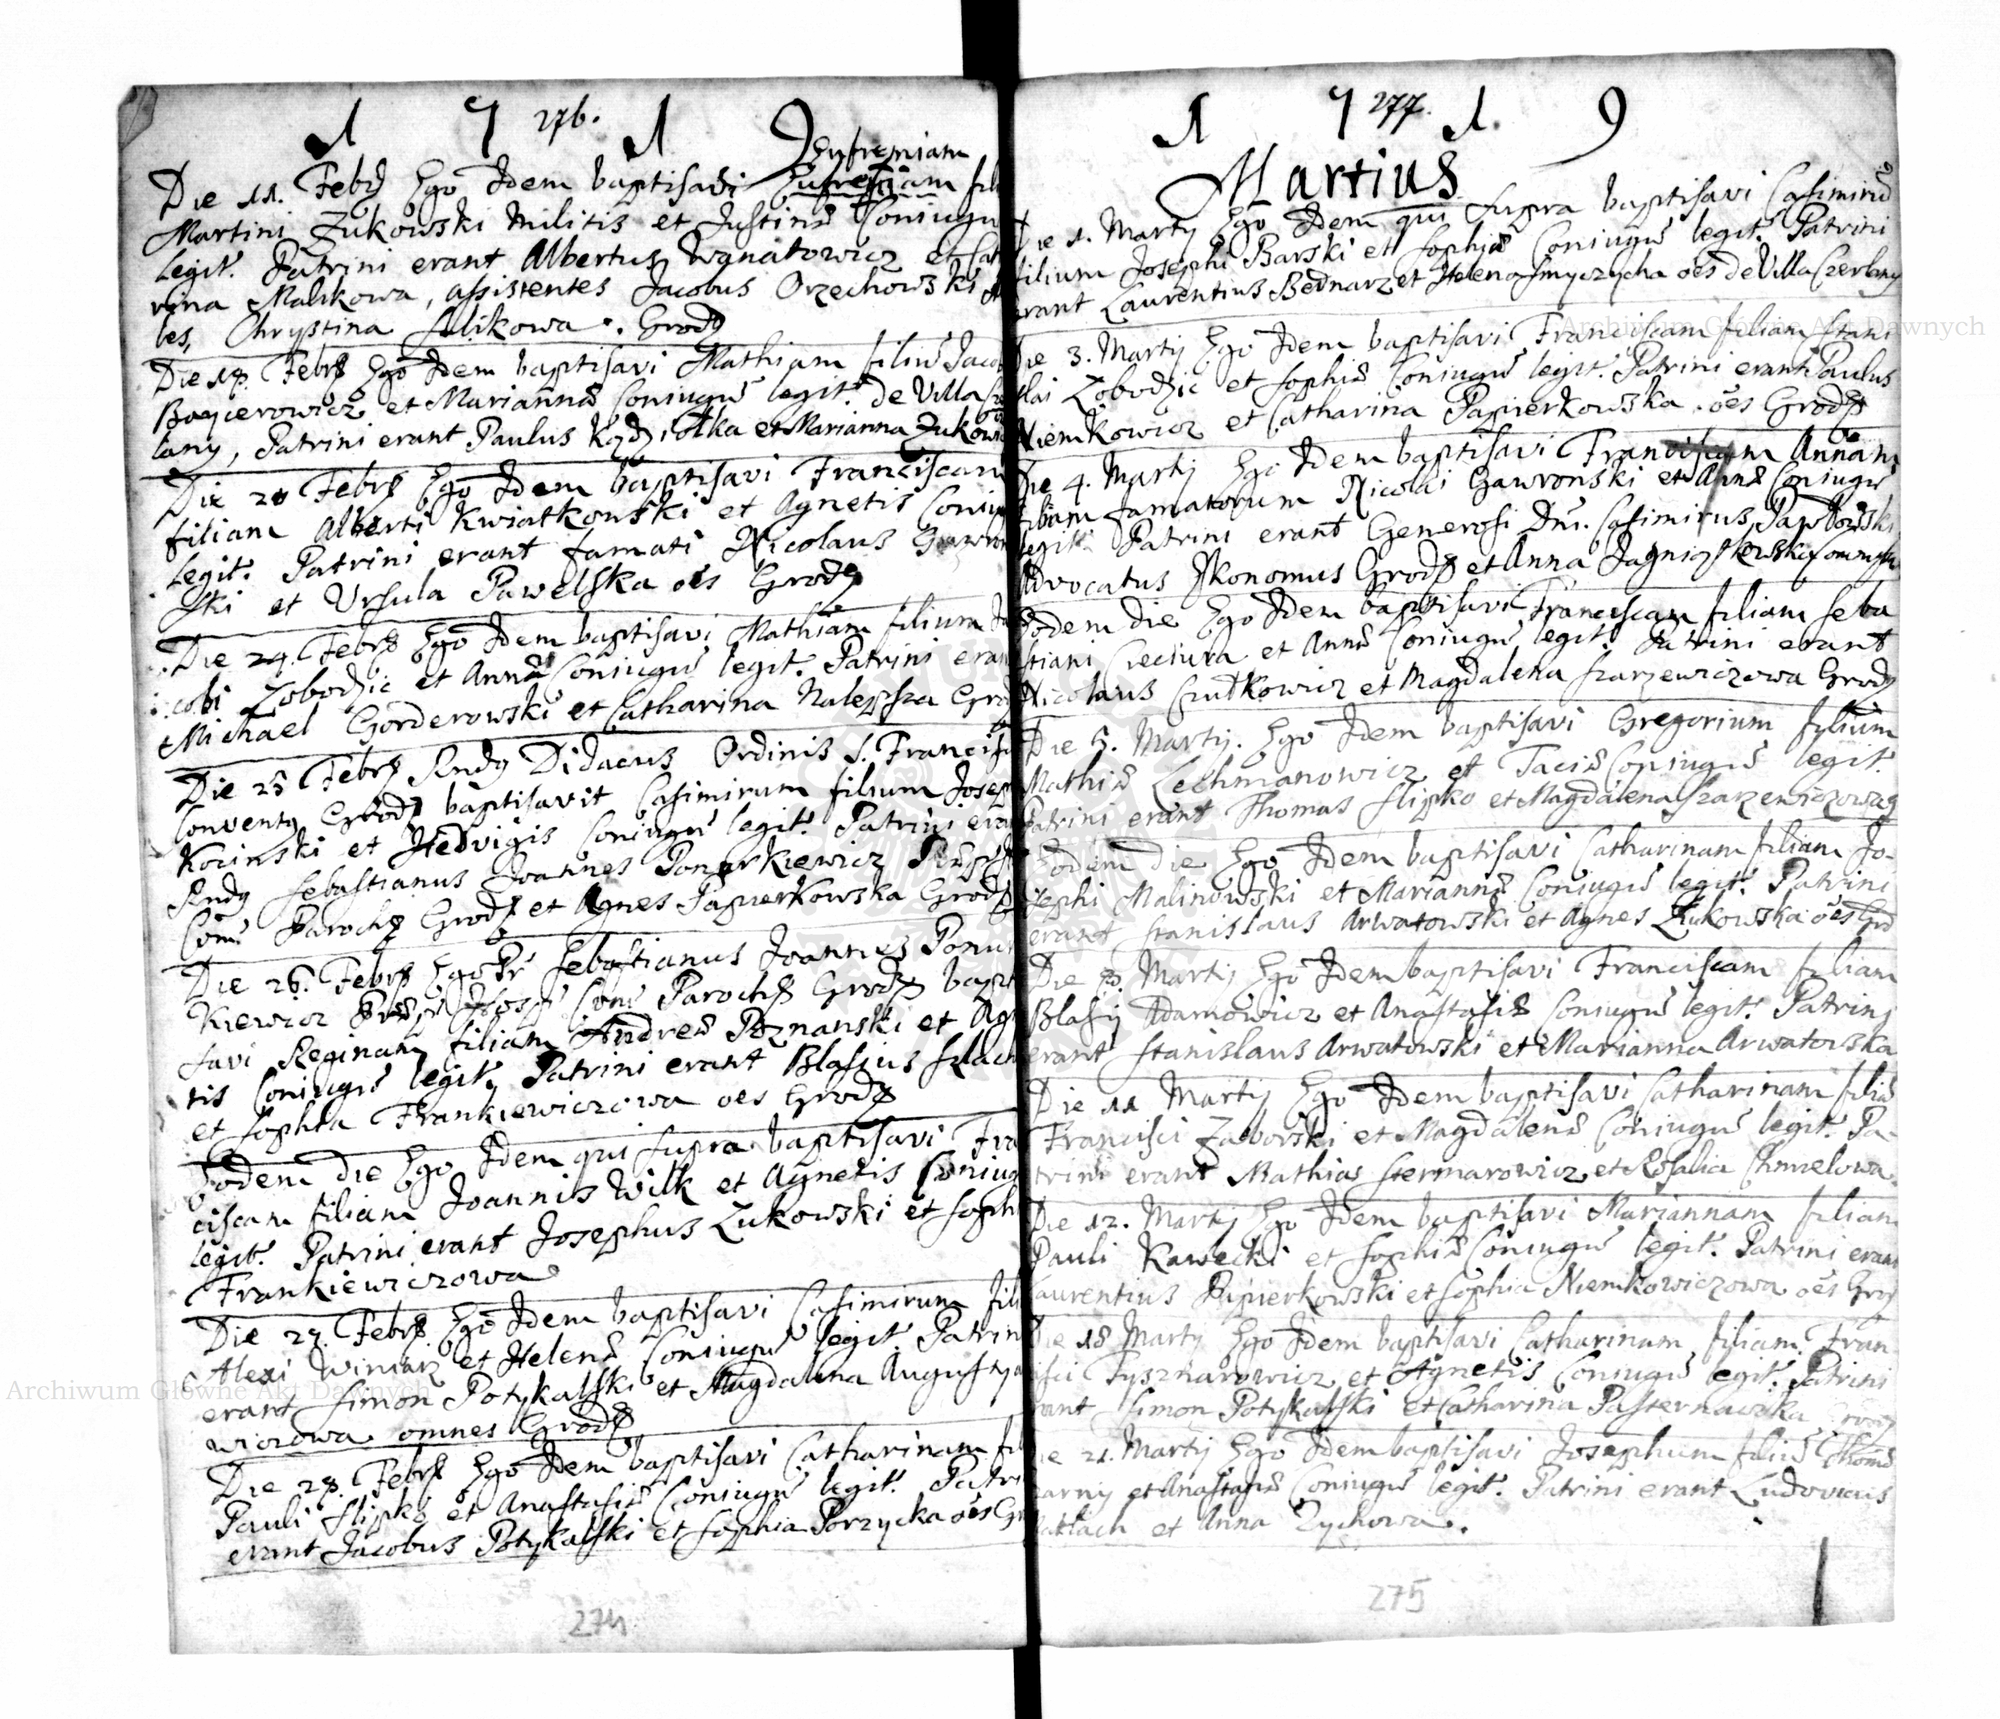 1 7 276. 1 9
Eufremiam
Die 11. Febr. Ego Idem baptisavi fili
Martini Zukowski Militis et Justinæ Coniugu
legit. Patrini erant Albertus Wgnatowicz et Cat
rina Malikowa, assistentes Jacobus Orzechowski
les, Chrystina Slikowa. Grod
Die 18. Febr. Ego Idem baptisavi Mathiam filiū Jaco
et Mariannæ Coniugū legit. de Villa
lany, Patrini erant Paulus et Marianna Zukow
Die 20 Febr. Ego Idem baptisavi Franciscam
filiam Alberti Kwiatkowski et Agnetis Coniug
legit. Patrini erant famati Nicolaus Gawron
ski et Ursula Pawelska oēs Grod
Die 24. Febr. Ego Idem baptisavi Mathiam filium Ja
cobi Zobodzic et Annæ Coniugū legit. Patrini eran
Michael Gorderowski et Catharina Nalepska Grod
Die 25 Febr. Rndg Didacus Ordinis S. Francis
Conventg Grod baptisavit Casimirum filium Josep
Kocinski et Hedvigis Coniugū legit. Patrini eran
Rndg Sebastianus Joannes Ponurkiewicz
Com Paroch Grod et Agnes Papierkowska Grod
Die 26. Febr. Ego Pr Sebastianus Joannes Ponur
kiewicz Com Paroch Grod bapti
savi Reginam filiam Andreæ Poznanski et Agn
tis Coniugū legit. Patrini erant Blasius Szlach
et Sophia Frankiewiczowa oēs Grod
Eodem die Ego Idem qui supra baptisavi Fra
ciscam filiam Joannis Wilk et Agnetis Coniug
legit. Patrini erant Josephus Zukowski et Soph
Frankiewiczowa
Die 27. Febr. Ego Idem baptisavi Casimirum fili
Alexi Winiarz et Helenæ Coniugū legit Patrin
erant Simon Potykalski et Magdalena Augusty
wiczowa omnes Grod
Die 28. Febr. Ego Idem baptisavi Catharinam fil
Pauli Slipko et Anastasiæ Coniugū legit. Patri
erant Jacobus Potykalski et Sophia Porzycka oēs Gr
274
1 7 277. 1. 9
Martius
Die 1. Martij Ego Idem qui supra baptisavi Casimirū
filium Josephi Barski et Sophiæ Coniugū legit. Patrini
erant Laurentius Bednarz et Helena Smyczycha oēs de Villa Czerlany
Die 3. Martij Ego Idem baptisavi Franciscam filiam Stani
slai Zobodzic et Sophiæ Coniugū legit. Patrini erant Paulus
Niemkowicz et Catharina Papierkowska oēs Grod
Die 4. Martij Ego Idem baptisavi Franciscam Annam
filiam famatorum Nicolai Gawronski et Annæ Coniugū
legit. Patrini erant Generosi Dni. Casimirus
Advocatus Ækonomus Grod et Anna
Eodem die Ego Idem baptisavi Franciscam filiam Seba
stiani Creciura et Annæ Coniugū legit. Patrini erant
Nicolaus Czutkowicz et Magdalena Szarzewiczowa Grod
Die 5. Martij. Ego Idem baptisavi Gregorium filium
Mathiæ Lechmanowicz et Taciæ Coniugū legit.
Patrini erant Thomas Slipko et Magdalena Szarzewiczowa
Eodem die Ego Idem baptisavi Catharinam filiam Jo-
sephi Malinowski et Mariannæ Coniugū legit. Patrini
erant Stanislaus Arwatowski et Agnes Zukowska oēs Grd
Die 8. Martij Ego Idem baptisavi Franciscam filiam
Blasij Adamowicz et Anastasiæ Coniugū legit. Patrini
erant Stanislaus Arwatowski et Marianna Arwatowska
Die 11 Martij Ego Idem baptisavi Catharinam filiā
Francisci Zaborski et Magdalenæ Coniugū legit. Pa-
trini erant Mathias Stermarowicz et Rosalia Chmielowa.
Die 12. Martij Ego Idem baptisavi Mariannam filiam
Pauli Kawecki et Sophiæ Coniugū legit. Patrini erant
Laurentius Papierkowski et Sophia Niemkowiczowa oēs Grod
Die 18 Martij Ego Idem baptisavi Catharinam filiam Fran-
cisci Tysznarowicz et Agnetis Coniugū legit. Patrini
erant Simon Potykalski et Catharina Pasternawska Grod
Die 21. Martij Ego Idem baptisavi Josephum filiū Thomæ
et Anastasiæ Coniugū legit. Patrini erant Ludovicus
et Anna Zychowa.
275
Archiwum Główne Akt Dawnych
Archiwum Główne Akt Dawnych